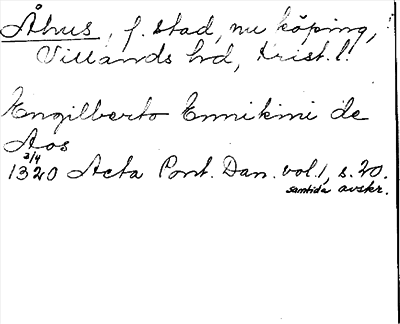 Åhus, f. stad, nu köping,
Villands hd, Krist. l.
Engilberto Ennikini de
Aos
3/4
1320 Acta Pont. Dan. vol. 1, s. 20.
samtida avskr.